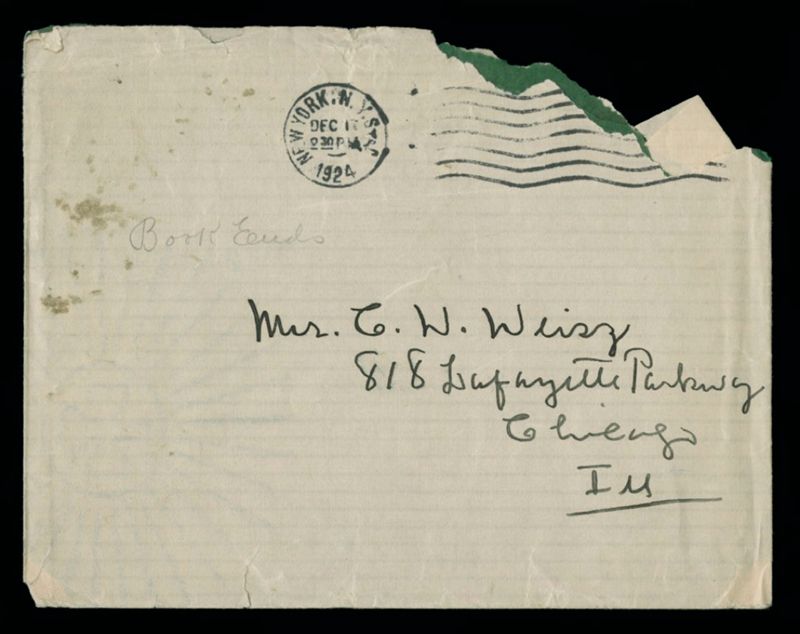 NEW YORK, N.Y. STA
DEC 1
30 PM
1924
Book Ends
Mrs. C. W. Weisz
818 Lafayette Parkway
Chicago
Ill